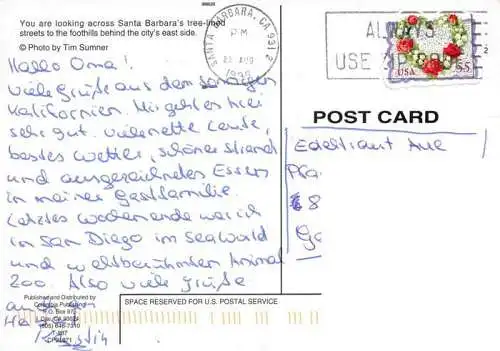 You are looking across Santa Barbara's tree-lined
streets to the foothills behind the city's east side.
© Photo by Tim Sumner
SANTA BARBARA, CA 931 2
PM
1999
ALWAYS
USE ZIP CODE
USA 55
POST CARD
Hallo Oma!
viele Grüße aus dem sonnigen
Kalifornien. Mir geht es hier
sehr gut. viele nette Leute,
bestes Wetter, schöner Strand
und ausgezeichnetes Essen
in meiner Gastfamilie.
Letztes Wochenende war ich
in San Diego im Seaworld
und weltberühmten Animal
Zoo. Also viele Grüße
Edeltraut
8
SPACE RESERVED FOR U.S. POSTAL SERVICE
Published and Distributed by
Columbia Publishing
P.O. Box 973
(805) 646-7310
Kerstin